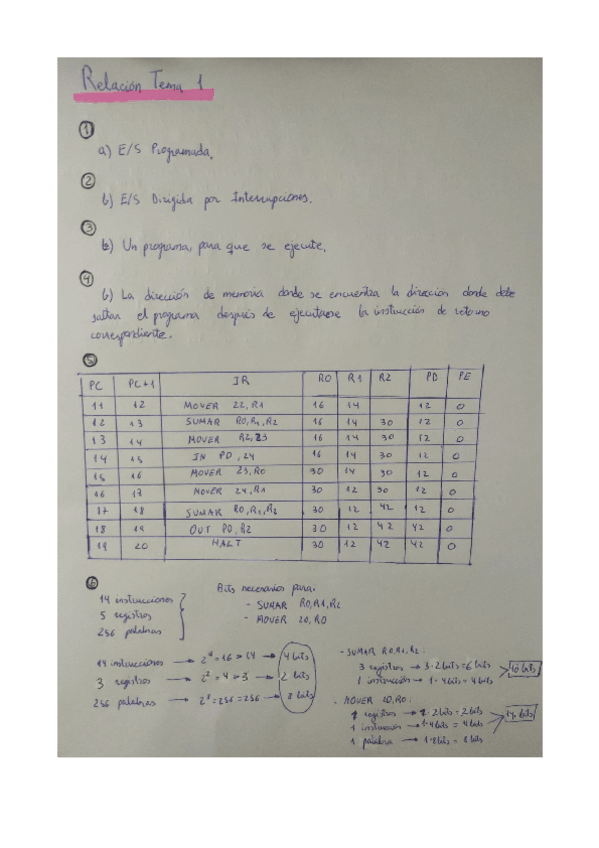 Relación Tema 1
①
a) E/S Programada.
②
b) E/S Dirigida por Interrupciones.
③
b) Un programa, para que se ejecute.
④
b) La dirección de memoria donde se encuentra la dirección donde debe
saltar el programa después de ejecutarse la instrucción de retorno
correspondiente.
⑤
PC PC+1 IR R0 R1 R2 PD PE
11 12 MOVER 22, R1 16 14 12 0
12 13 SUMAR R0, R1, R2 16 14 30 12 0
13 14 MOVER R2, 23 16 14 30 12 0
14 15 IN PD, 24 16 14 30 12 0
15 16 MOVER 23, R0 30 14 30 12 0
16 17 MOVER 24, R1 30 12 30 12 0
17 18 SUMAR R0, R1, R2 30 12 42 12 0
18 19 OUT PD, R2 30 12 42 42 0
19 20 HALT 30 12 42 42 0
⑥
14 instrucciones
5 registros
256 palabras
Bits necesarios para:
- SUMAR R0, R1, R2
- MOVER 20, R0
14 instrucciones → 2^4 = 16 > 14 → 4 bits
3 registros → 2^2 = 4 > 3 → 2 bits
256 palabras → 2^8 = 256 = 256 → 8 bits
- SUMAR R0, R1, R2:
3 registros → 3·2 bits = 6 bits
1 instrucción → 1·4 bits = 4 bits
10 bits
- MOVER 20, R0:
1 registros → 1·2 bits = 2 bits
1 instrucción → 1·4 bits = 4 bits
1 palabra → 1·8 bits = 8 bits
14 bits